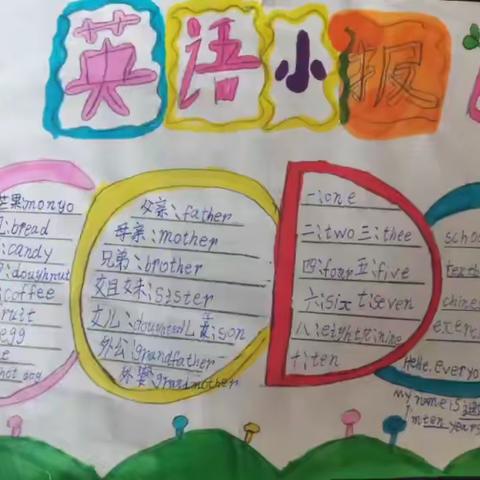 英语小报
芒果:monyo
:bread
:candy
:doughnut
:coffee
ruit
egg
e
hot dog
父亲:father
母亲:mother
兄弟:brother
姐妹:sister
女儿:son
外公:grandfather
外婆:grandmother
一:one
二:two 三:thee
四:four 五:five
六:six 七:seven
八:eight 九:nine
十:ten
schoo
textb
chines
exerc
Hello, everyo
my name is
I'm ten years